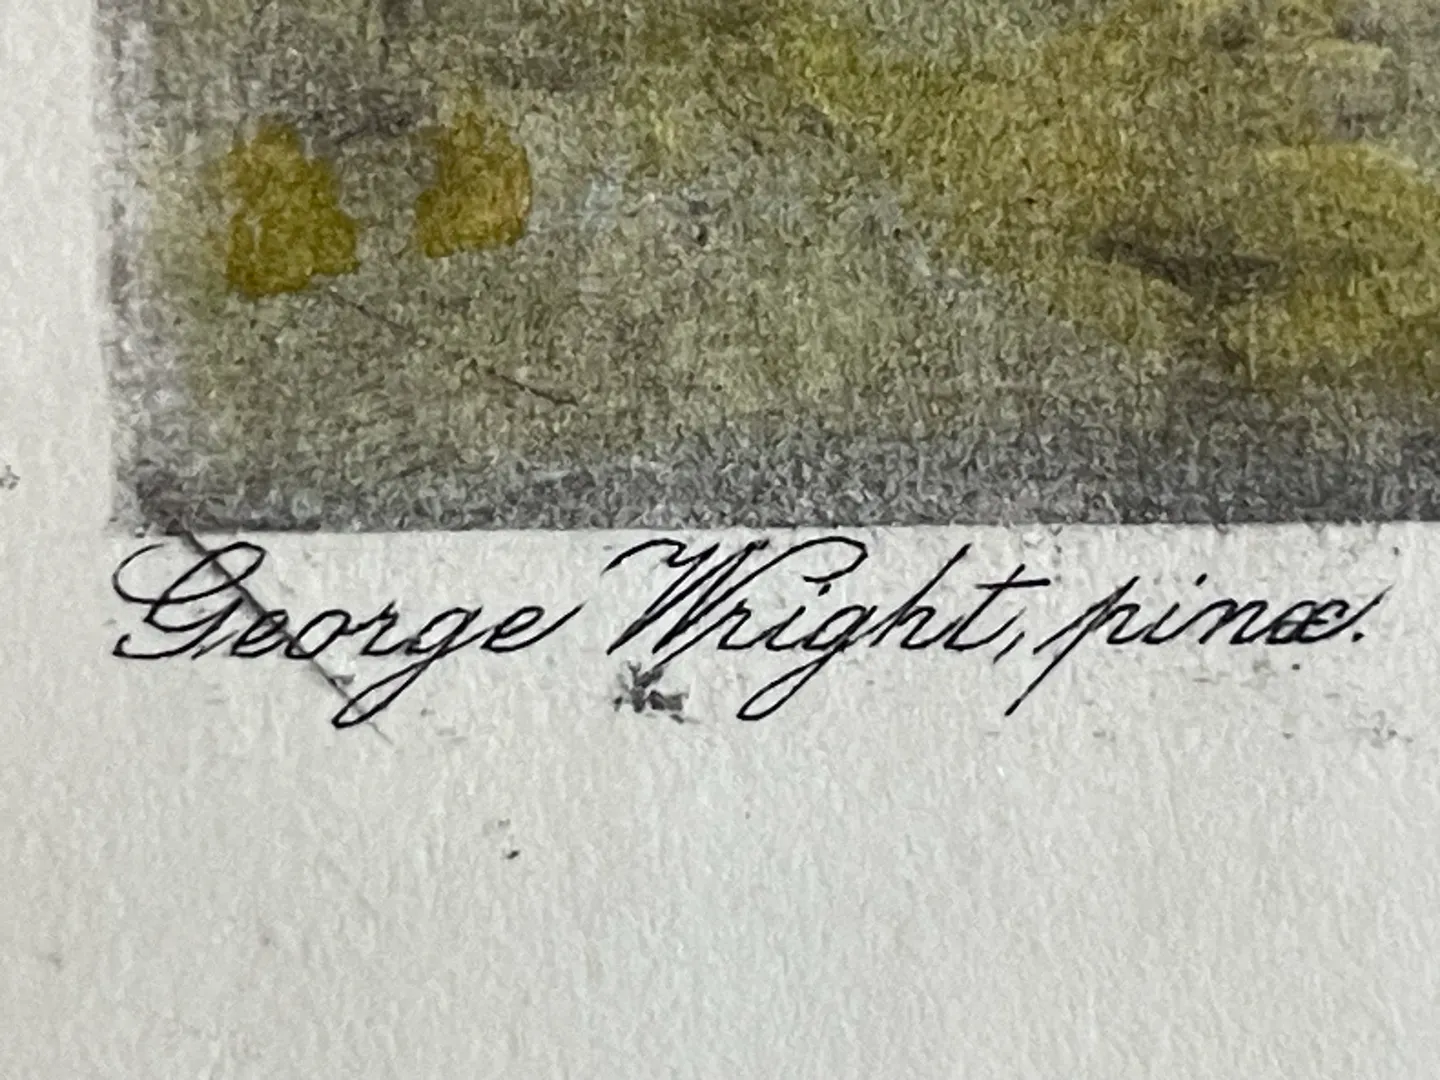 George Wright, pinœ.